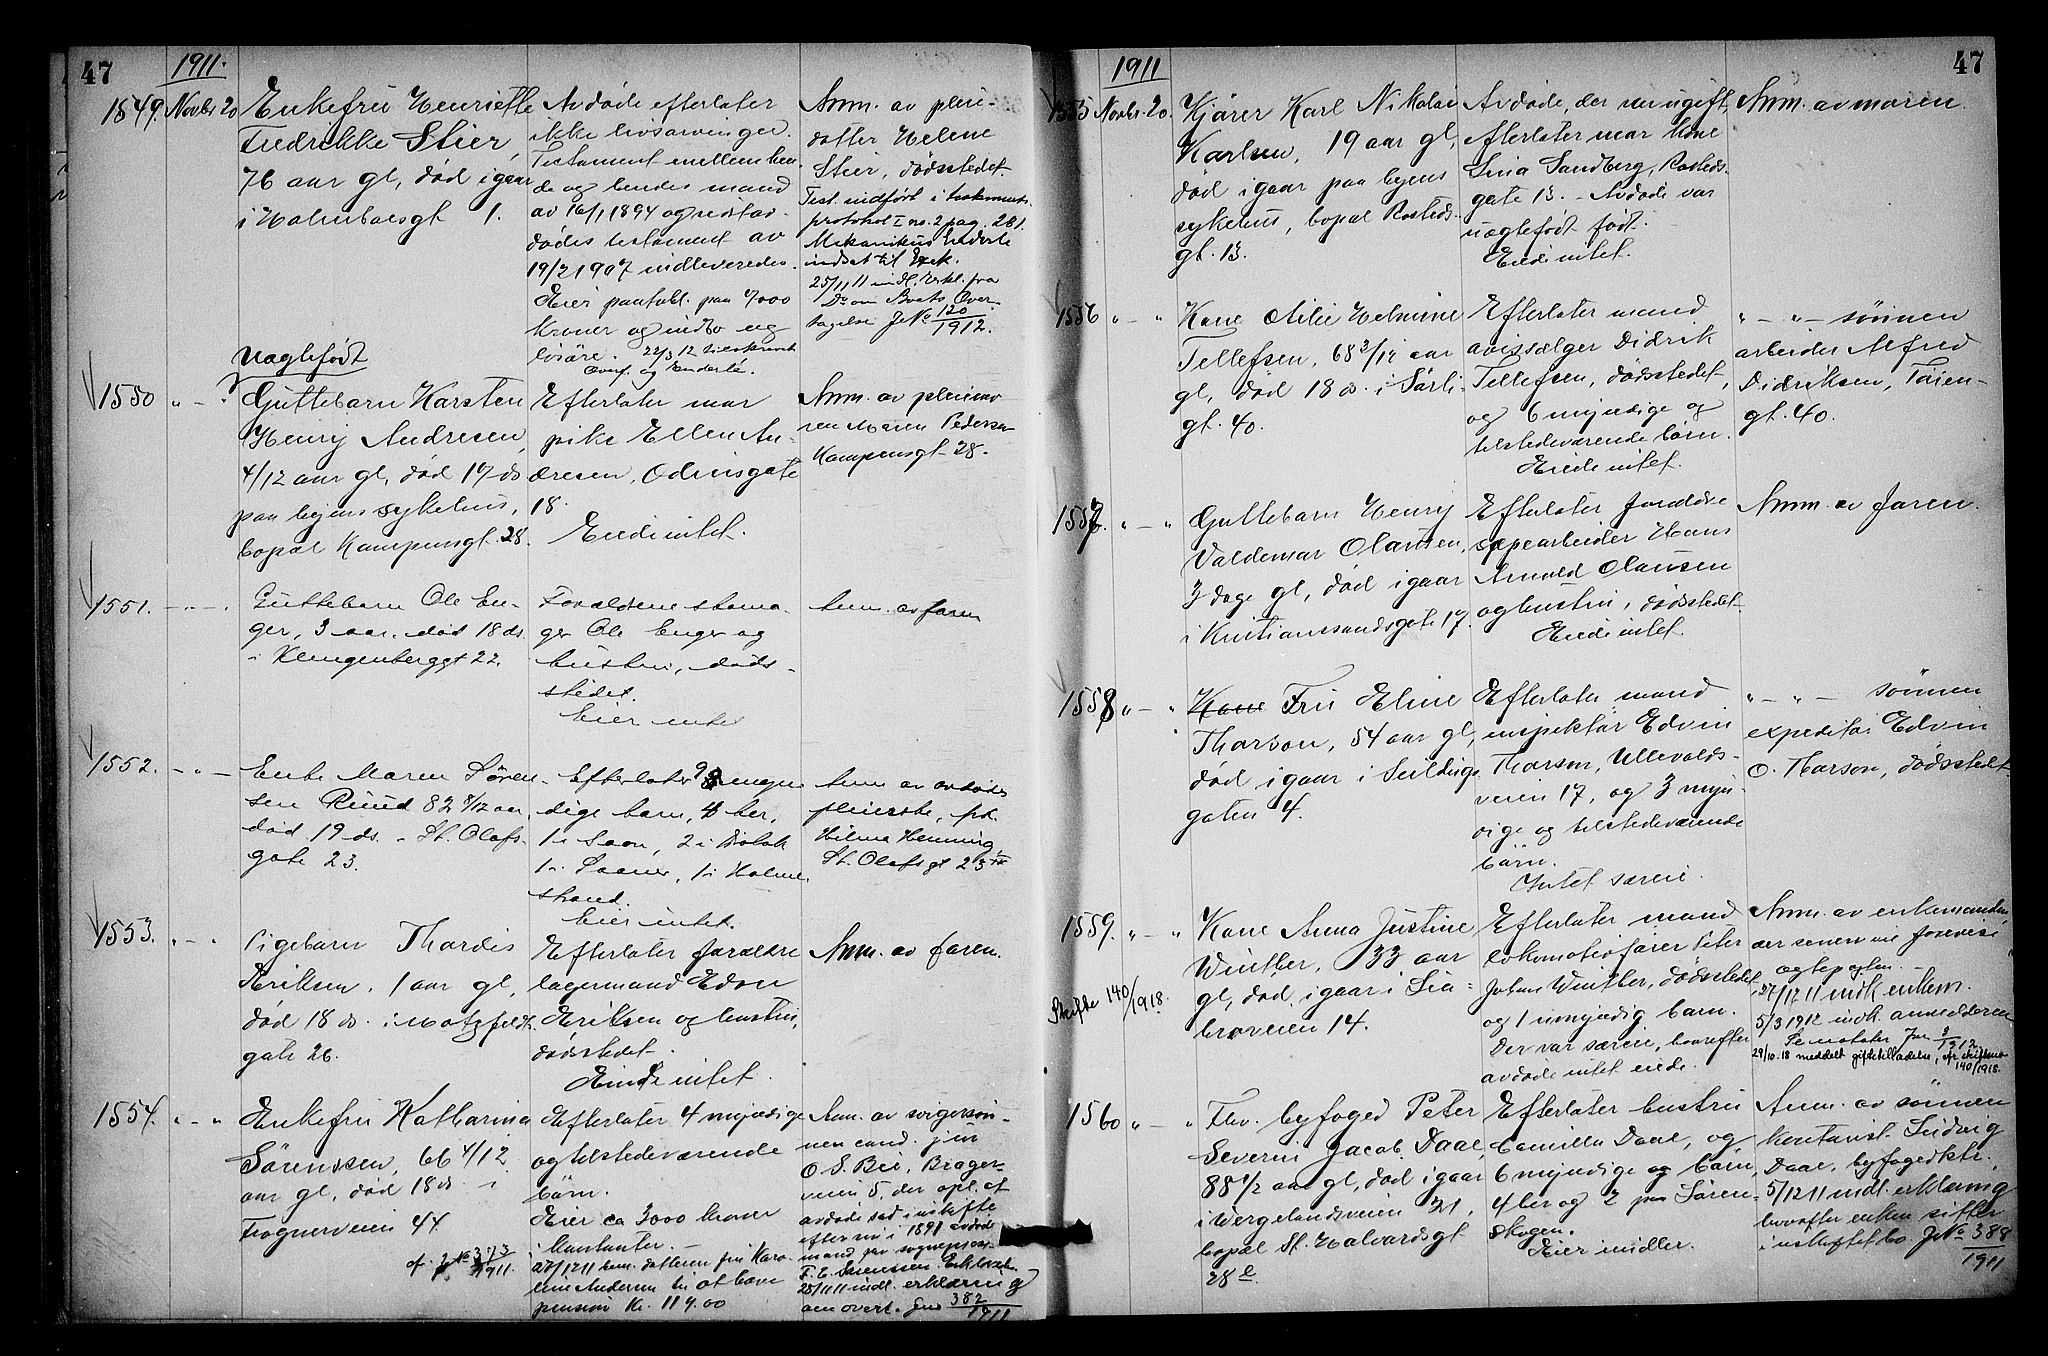 47
1911.
1549. Novbr 20
Enkefru Henriette
Fredrikke Stier,
76 aar gl, død igaar
i Holmboesgt 1.
Avdøde efterlater
ikke livsarvinger.
Testament mellem hen-
de og hendes mand
av 16/1 1894 og
dødes testament av
19/2 1907 indleveredes.
Eier paa 7000
kroner og indbo og
løsøre. 22/3 12
Anm. av pleie-
datter Helene
Stier, dødsstedet.
Test. indført i testaments-
protokol I no. 2 pag. 281.
25/11 11 indl. erkl. fra
tagelse J No 120/1912.
Uægtefødt
1550 " - "
Guttebarn Karsten
Henry Andresen,
4/12 aar gl, død 17 ds
paa byens sykehus,
bopæl Kampensgt. 28.
Efterlater mor
pike Ellen An-
dresen, Odinsgate
18.
Eiede intet.
Anm. av pleiemo-
ren Maren Pedersen
Kampensgt 28.
1551. - " - .
Guttebarn Ole En-
ger, 3 aar, død 18 ds.
i Klingenberggt 22.
Forældrene skoma-
ger Ole Enger og
hustru, døds-
stedet.
Eier intet
Anm. av faren
1552. - " -
Enke Maren Søren-
sen Ruud 82 8/12 aar,
død 19 ds. - St. Olafs-
gate 23.
Efterlater 9 myn-
dige barn, 4 her,
1 i Saon, 2 i
1 i , 1 i Holme-
strand.
Eier intet.
Anm av avdødes
pleierske, frk.
Hilma Henning,
St. Olafsgt 23
1553. " - "
Pigebarn Thordis
Eriksen, 1 aar gl,
død 18 ds. i Motzfeldts
gate 26.
Efterlater forældre
lagermand Edon
Eriksen og hustru,
dødsstedet.
Eiede intet.
Anm. av faren.
1554. " - "
Enkefru Katharina
Sørenssen, 66 4/12
aar gl, død 18 ds. i
Frognerveien 44.
cf. J No 373/1911.
Efterlater 4 myndige
og tilstedeværende
børn.
Eier ca 3000 kroner
i kontanter.
27/12 11 anm. datteren fru Karo-
line Andersen til at have
pension Kr. 119.00
Anm. av svigersøn-
nen cand. jur
O. S. Bie, Brager-
veien 5, der opl. at
avdøde sad i uskifte
efter sin i 1891 avdøde
mand fhv sogneprest
F. E. Sørenssen.
25/11 11 indl. erklæring
om overt. Jno 382/1911
47
1911
1555 Novbr. 20.
Kjører Karl Nikolai
Karlsen, 19 aar gl,
død igaar paa byens
sykehus, bopæl Rosteds-
gt. 13.
Avdøde, der var ugift,
efterlater mor kone
Lina Sandberg, Rosteds-
gate 13. - Avdøde var
uægtefødt født.
Eiede intet.
Anm. av moren.
1556 " - "
Kone Otilie Helmine
Tellefsen, 68 3/12 aar
gl, død 18 ds. i Sørli-
gt. 40.
Efterlater mand
avissælger Didrik
Tellefsen, dødsstedet,
og 6 myndige og
tilstedeværende børn.
Eiede intet.
" - " - sønnen
arbeider Alfred
Didriksen, Tøien-
gt. 40.
1557. " - "
Guttebarn Henry
Valdemar Olausen,
3 dage gl, død igaar
i Kristianssandsgate 17.
Efterlater forældre
sæpearbeider Hans
Arnold Olausen
og hustru, dødsstedet.
Eiede intet.
Anm. av faren.
1558 " - "
Kone Fru Eline
Tharson, 54 aar gl,
død igaar i Seildugs
gaten 4.
Efterlater mand
inspektør Edvin
Tharson, Ullevolds-
veien 17, og 3 myn-
dige og tilstedeværende
børn.
Intet særeie.
" - " - sønnen
expeditør Edvin
O. Tharson, dødsstedet
1559. " - "
Skifte 140/1918.
Kone Anna Justine
Winther, 33 aar
gl, død igaar i Lia-
broveien 14.
Efterlater mand
lokomotivfører Peter
Johan Winther, dødsstedet,
og 1 umyndig barn.
Der var særeie, hvorefter
avdøde intet eiede.
Anm. av enkemanden,
der senere vil forevise
27/12 11 indk. enkem.
5/3 1912 indk. anmelderen
Se notater Jnr 3/1912.
29/10. 18 meddelt giftetilladelse, cfr skifteno
140/1918.
1560 " - "
Fhv. byfoged Peter
Severin Jacob Daae,
88 1/2 aar gl, død igaar
i Wergelandsveien 21,
bopæl St. Halvardsgt
28 e
Efterlater hustru
Camilla Daae, og
6 myndige og børn,
4 her og 2 paa Søren-
skogen.
Eier midler.
Anm. av sønnen
kontorist Ludvig
Daae, byfogedktr.
5/12 11 indl. erklæring
hvorefter enken sitter
i uskiftet bo J No 388/1911